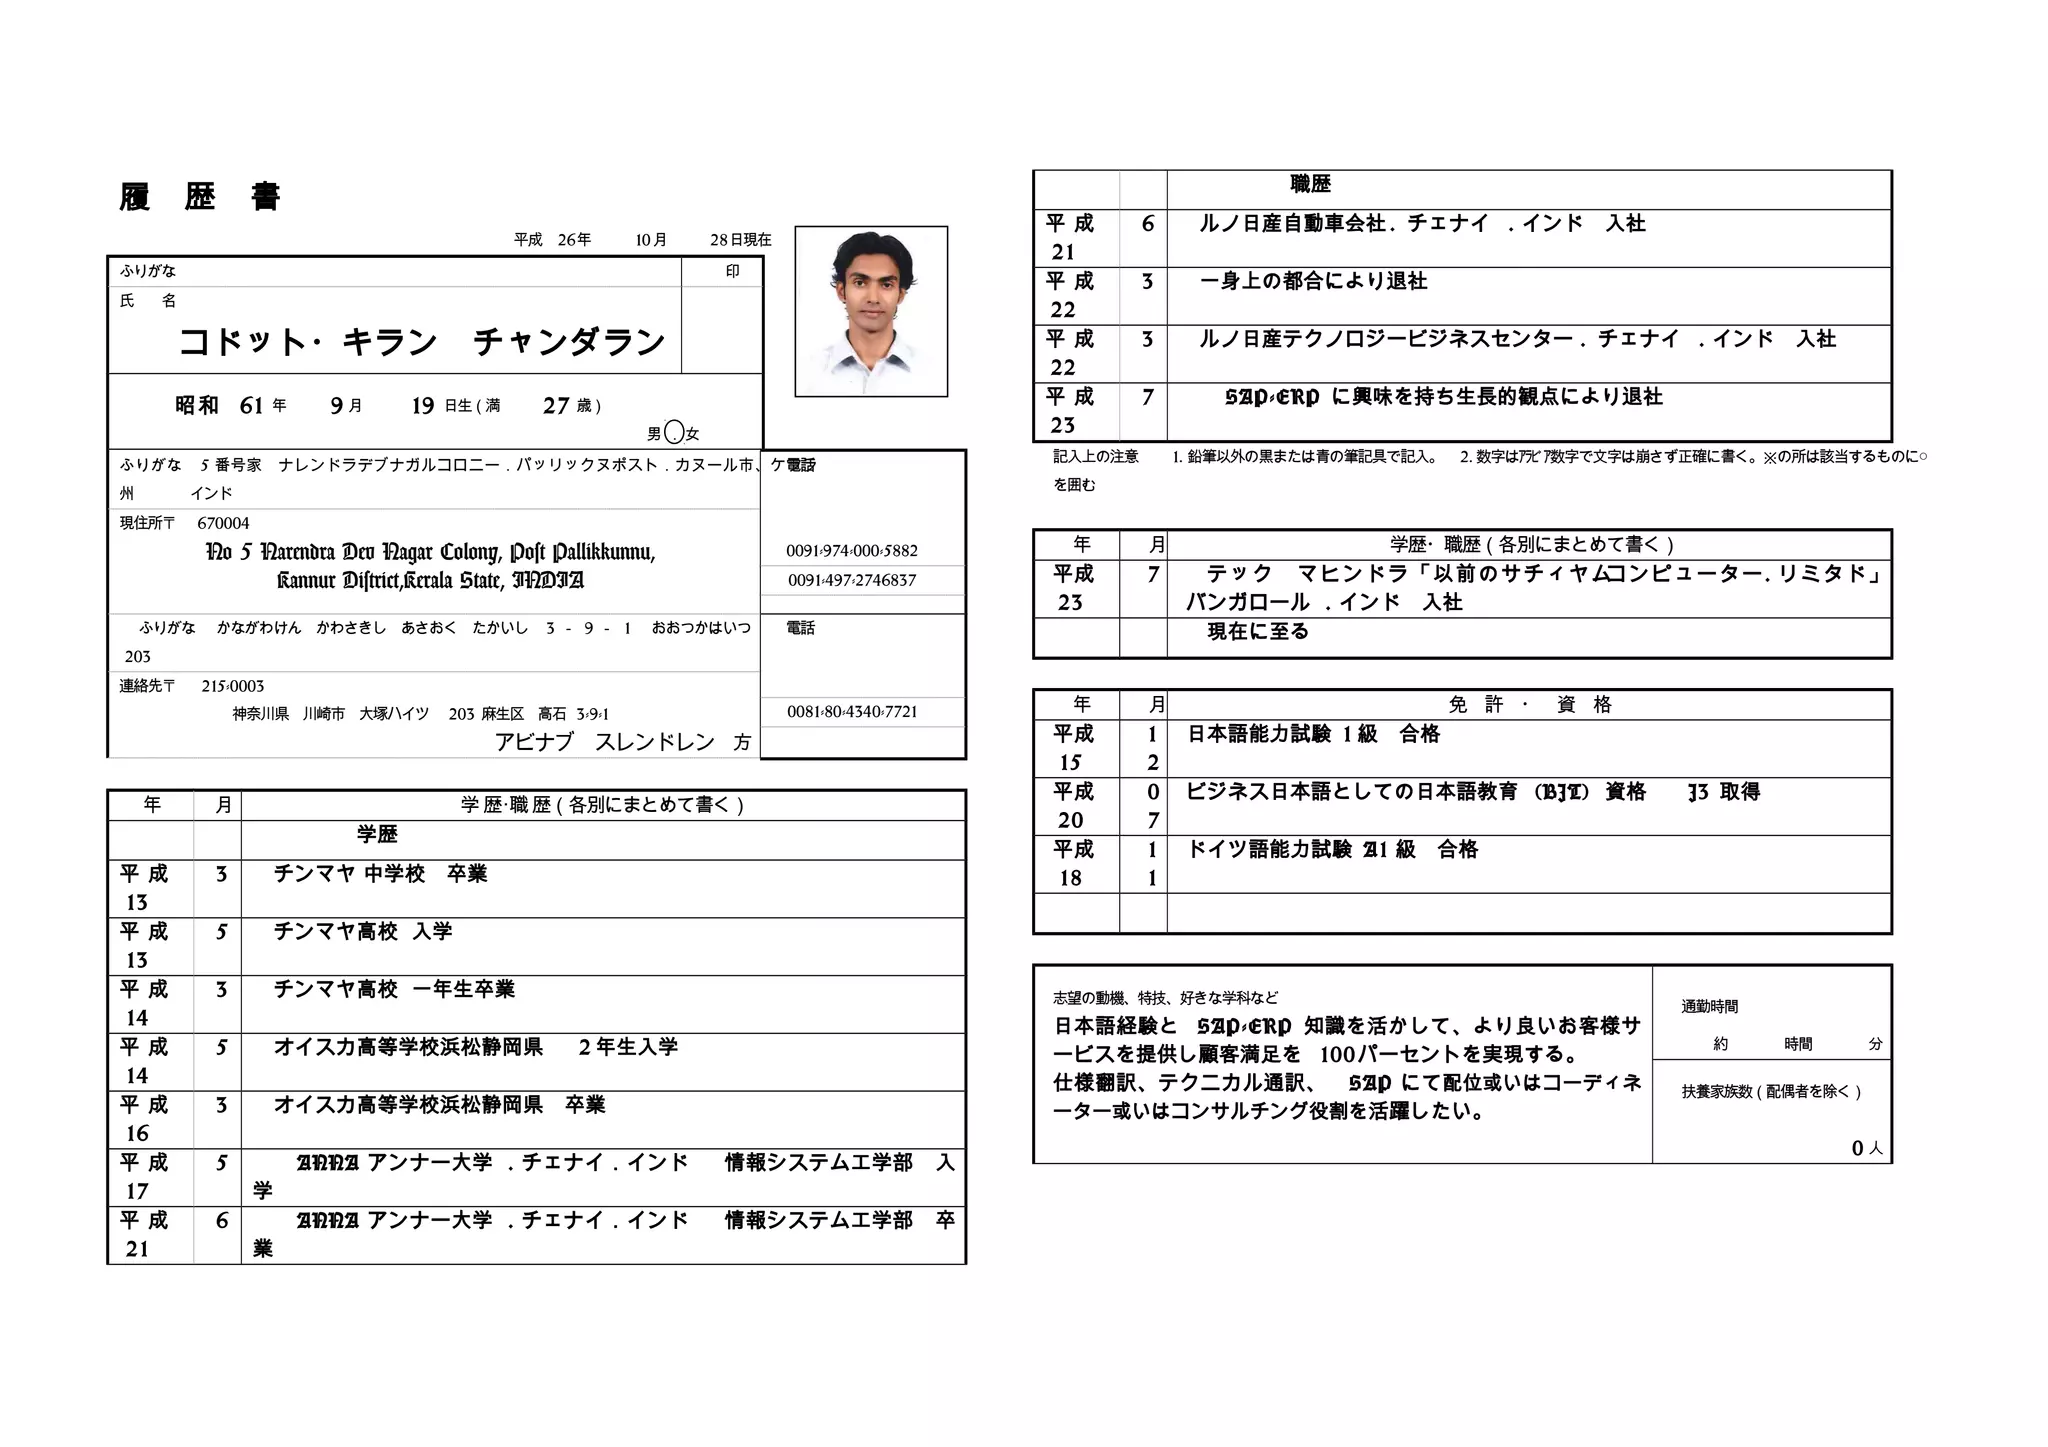 履 歴 書
平成 26年 10月 28日現在
ふりがな 印
氏 名
コドット・キラン チャンダラン
昭和 61 年 9 月 19 日生 ( 満 27 歳 )
男 . 女
ふりがな 5 番号家 ナレンドラデブナガルコロニー . パッリックヌポスト . カヌール市、ケ
州 インド
電話
現住所〒 670004
No 5 Narendra Dev Nagar Colony, Post Pallikkunnu,
Kannur District,Kerala State, INDIA
0091-974-000-5882
0091-497-2746837
ふりがな かながわけん かわさきし あさおく たかいし 3 - 9 - 1 おおつかはいつ
203
電話
連絡先〒 215-0003
神奈川県 川崎市 大塚ハイツ 203 麻生区 高石 3-9-1
アビナブ スレンドレン 方
0081-80-4340-7721
年 月 学 歴・職 歴 ( 各別にまとめて書く )
学歴
平 成 13 3 チンマヤ 中学校 卒業
平 成 13 5 チンマヤ高校 入学
平 成 14 3 チンマヤ高校 一年生卒業
平 成 14 5 オイスカ高等学校浜松静岡県 2 年生入学
平 成 16 3 オイスカ高等学校浜松静岡県 卒業
平 成 17 5 ANNA アンナー大学 . チェナイ . インド 情報システム工学部 入
学
平 成 21 6 ANNA アンナー大学 . チェナイ . インド 情報システム工学部 卒
業
職歴
平 成 21 6 ルノ日産自動車会社 . チェナイ . インド 入社
平 成 22 3 一身上の都合により退社
平 成 22 3 ルノ日産テクノロジービジネスセンター . チェナイ . インド 入社
平 成 23 7 SAP-ERP に興味を持ち生長的観点により退社
記入上の注意 1. 鉛筆以外の黒または青の筆記具で記入。 2. 数字はｱﾗﾋﾞｱ数字で文字は崩さず正確に書く。※の所は該当するものに○
を囲む
年 月 学歴・職歴 ( 各別にまとめて書く )
平成 23 7 テック マヒンドラ「以前のサティヤムコンピューター . リミタド」
バンガロール . インド 入社
現在に至る
年 月 免 許 ・ 資 格
平成 15 12 日本語能力試験 1 級 合格
平成 20 07 ビジネス日本語としての日本語教育 (BJT) 資格 J3 取得
平成 18 11 ドイツ語能力試験 A1 級 合格
志望の動機、特技、好きな学科など
日本語経験と SAP-ERP 知識を活かして、より良いお客様サ
ービスを提供し顧客満足を 100パーセントを実現する。
仕様翻訳、テクニカル通訳、 SAP にて配位或いはコーディネ
ーター或いはコンサルチング役割を活躍したい。
通勤時間
約 時間 分
扶養家族数 ( 配偶者を除く )
0 人